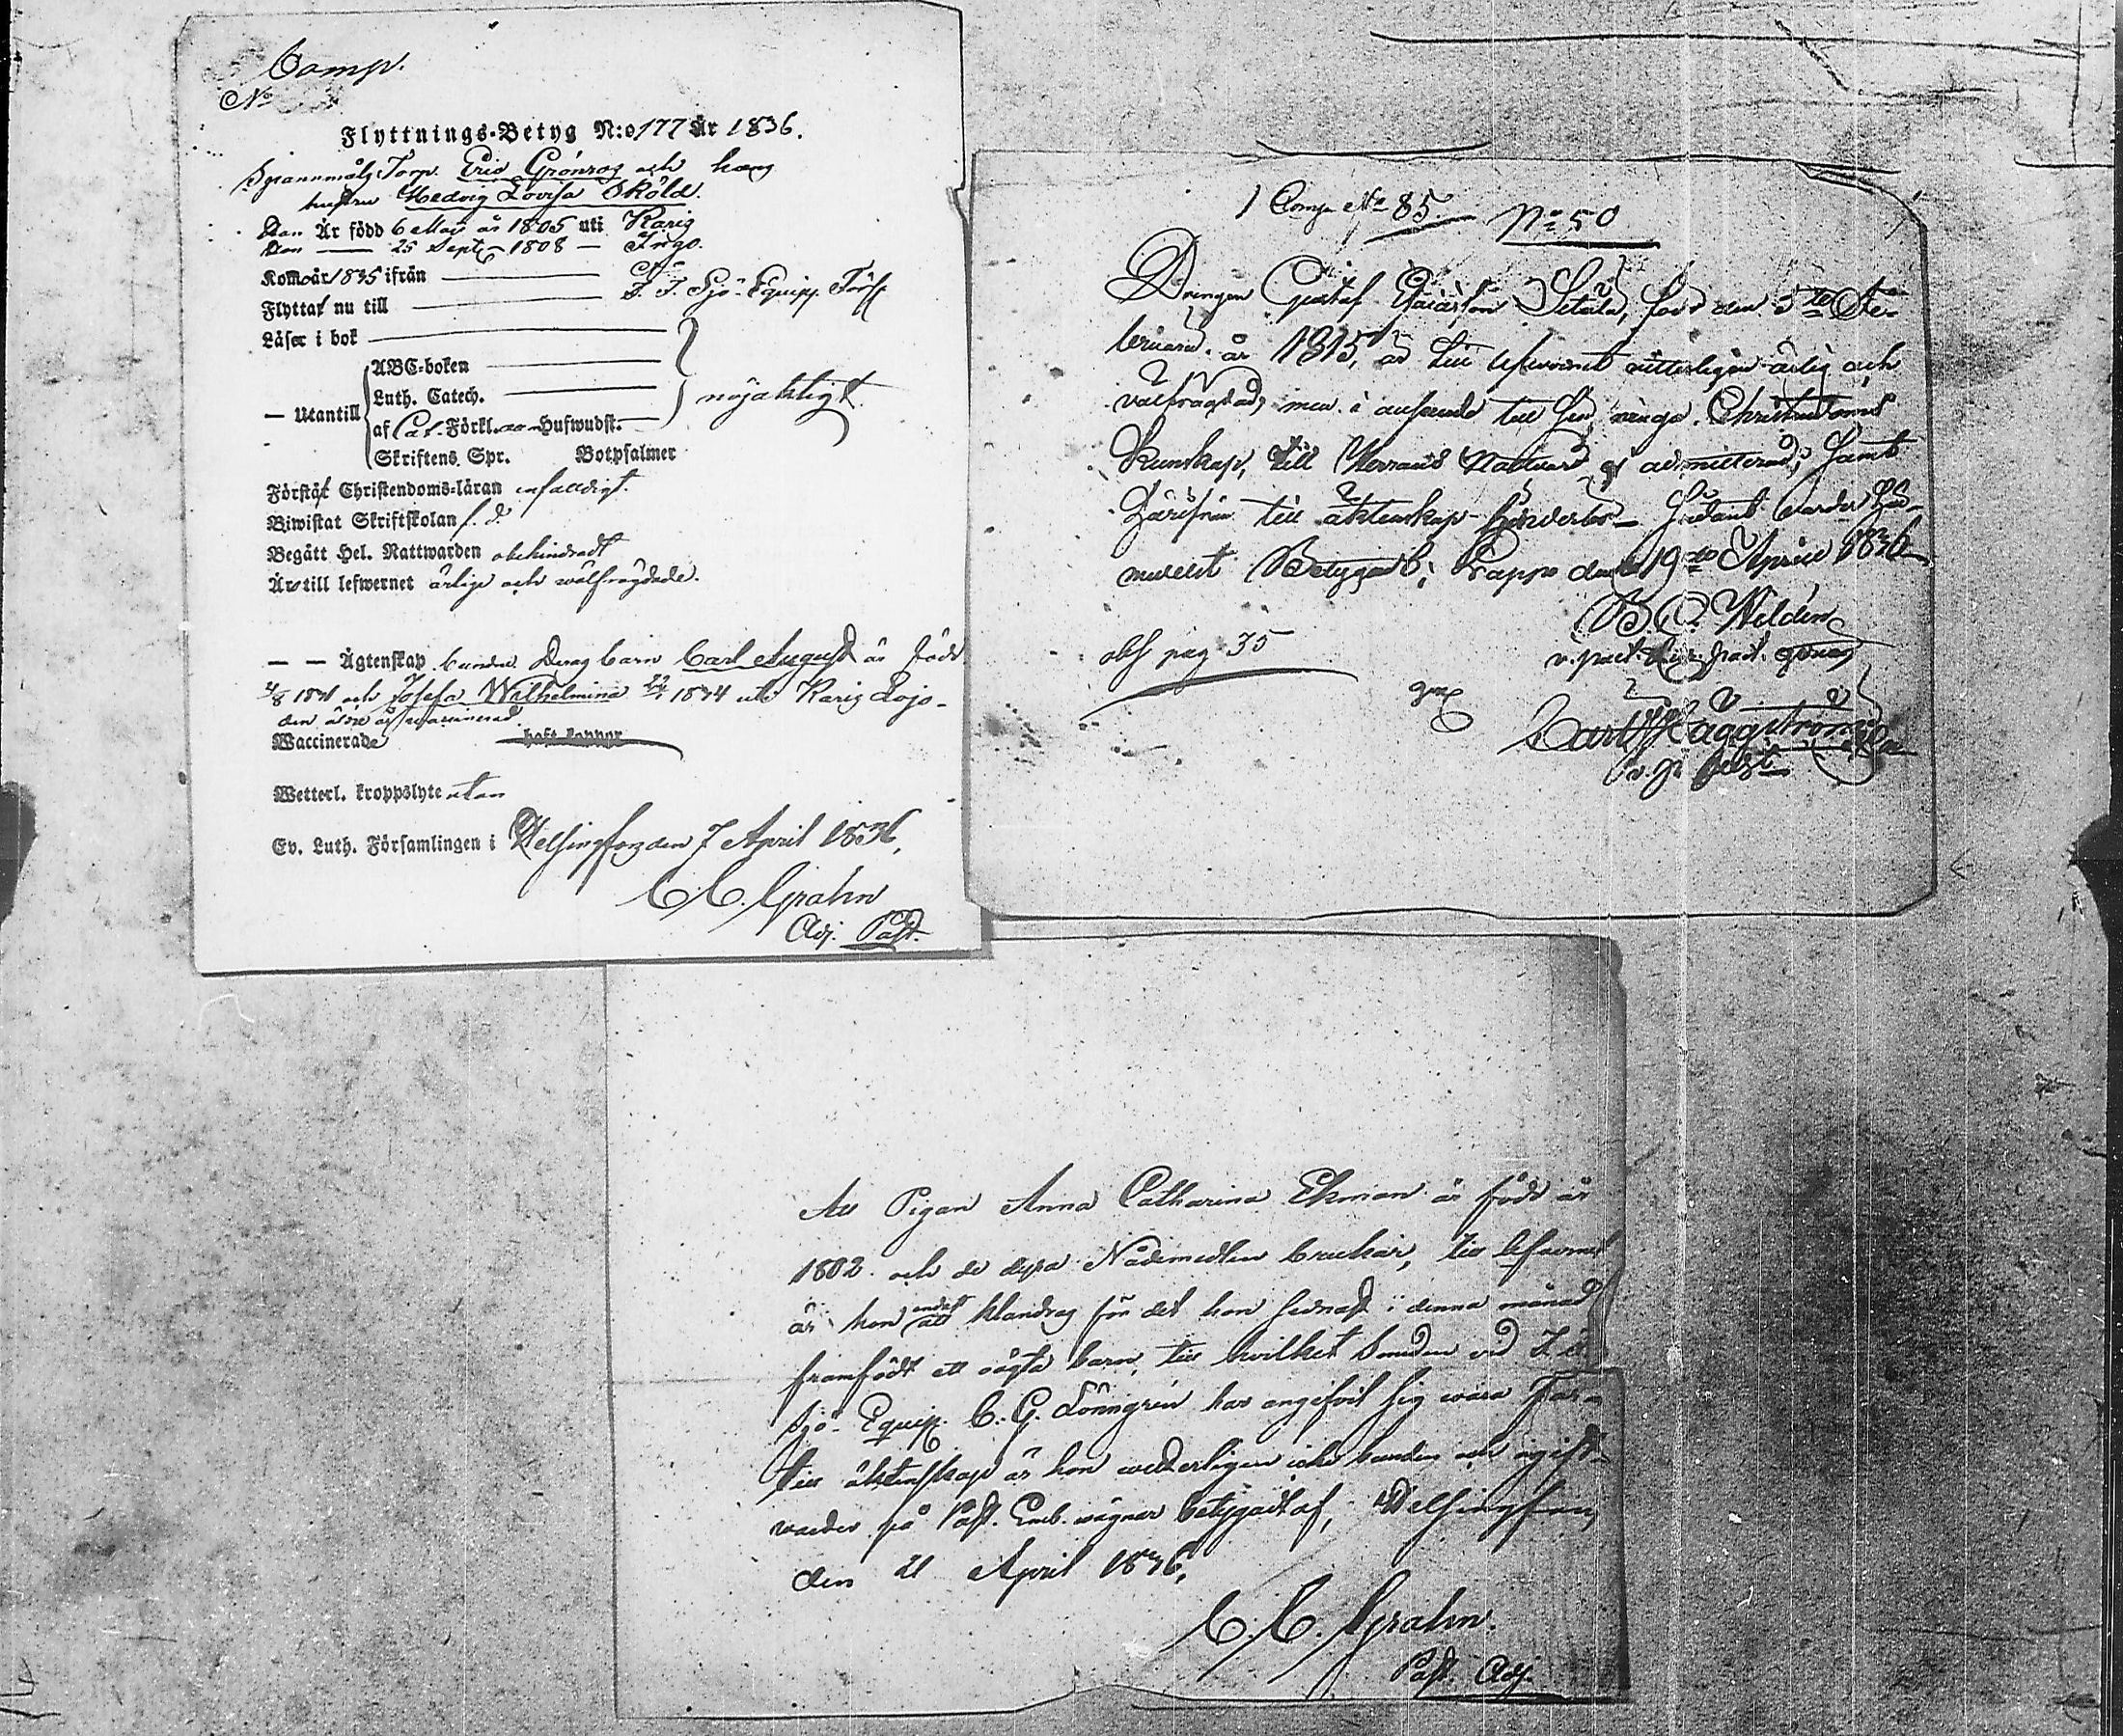 Comp.
No
Flyttnings-Betyg N:o 177 år 1836.
Spannmåls Torp. Eric Grönroos och hans
hustru Hedvig Lovisa Sköld.
Han Är född 6 Maj år 1805 uti Karis
Hon — 25 Sept. 1808 — Ingo.
Kommo år 1835 ifrån
Flyttar nu till 1. F. Sjö-Equip. Förs.
Läser i bok
ABC-boken
Luth. Catech.
— Utantill nöjaktigt.
af Cat. Förkl. Hufwudst.
Skriftens Spr. Botpsalmer
Förstår Christendoms-läran enfaldigt.
Biwistat Skriftskolan f. d.
Begått Hel. Nattwarden obehindradt
Äro till lefwernet ärlige och wälfrägdade.
— — Ägtenskap bundne. Deras barn Carl August är född
1831 och Josefa Wilhelmina 1834 uti Karis Lojo.
den äldre är vaccinerad
Waccinerade haft koppor
Wetterl. kroppslyte utan
Ev. Luth. Församlingen i Helsingfors den 7 April 1836.
C. C. Grahn
Adj. Past.
1 Comp No 85. No 50
Drengen Gustaf Setälä, född den 5te Fe-
bruarii år 1815, är till lefvernet vitterligen ärlig och
välfrägdad, men i anseende till sin ringa Christendoms
Kunskap, till Herrans Nattvard ej admitterad; samt
härifrån till äktenskap hinderlös. Sådant varder här-
medelst Betygadt; Pargas den 19de April 1836.
B. C. Weldén
v. past.
obs pag 35
Carl Häggström
Att Pigan Anna Catharina Ekman är född år
1802 och de dyra Nådemedlen brukar, till lefvernet
är hon endast att klandras för det hon sednast i denna månad
framfödt ett oägta barn, till hvilket Smeden vid 1. F.
Sjö-Equip. C. G. Lönngrén har angifvit sig wara Far.
till äktenskap är hon wetterligen icke bunden och ogift
warder på Past. Emb. wägnar betygadt af, Helsingfors
den 21 April 1836.
C. C. Grahn.
Past. Adj.